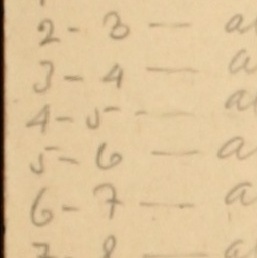 2 - 3 — a
3 - 4 — a
4 - 5 - — a
5 - 6 — a
6 - 7 — a
7 8 — a